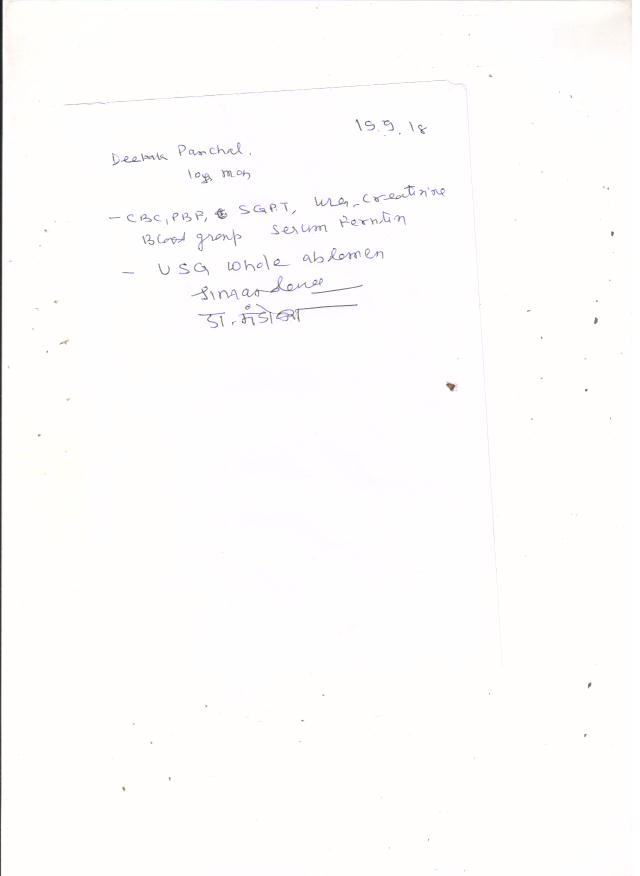 15.9.18
Deepak Panchal.
- CBC, PBF, SGPT, urea, creatinine
Blood group serum Ferritin
- USG whole abdomen
डा.